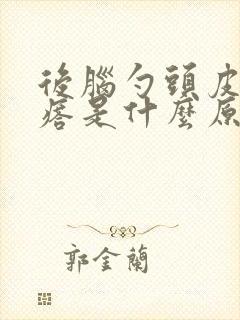 後腦勺頭皮
痞是什麼原
郭金蘭